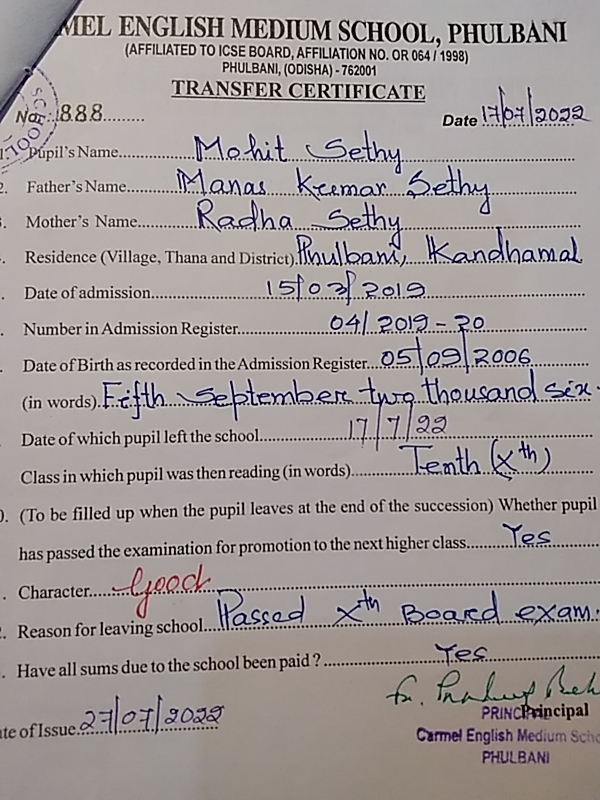 MEL ENGLISH MEDIUM SCHOOL, PHULBANI
(AFFILIATED TO ICSE BOARD, AFFILIATION NO. OR 064 / 1998)
PHULBANI, (ODISHA) - 762001
TRANSFER CERTIFICATE
No. 888
Date 17/07/2022
SCHOOL
1. Pupil's Name Mohit Sethy
2. Father's Name Manas Kumar Sethy
. Mother's Name Radha Sethy
. Residence (Village, Thana and District) Phulbani, Kandhamal
. Date of admission 15/03/2019
. Number in Admission Register 04/2019-20
. Date of Birth as recorded in the Admission Register 05/09/2006
(in words) Fifth September two thousand six.
Date of which pupil left the school 17/7/22
Class in which pupil was then reading (in words) Tenth (Xth)
0. (To be filled up when the pupil leaves at the end of the succession) Whether pupil
has passed the examination for promotion to the next higher class Yes
. Character Good
2. Reason for leaving school Passed Xth Board exam.
. Have all sums due to the school been paid ? Yes
Fr. Pradeep Beh
PRINCIPAL Principal
te of Issue 27/07/2022
Carmel English Medium Scho
PHULBANI